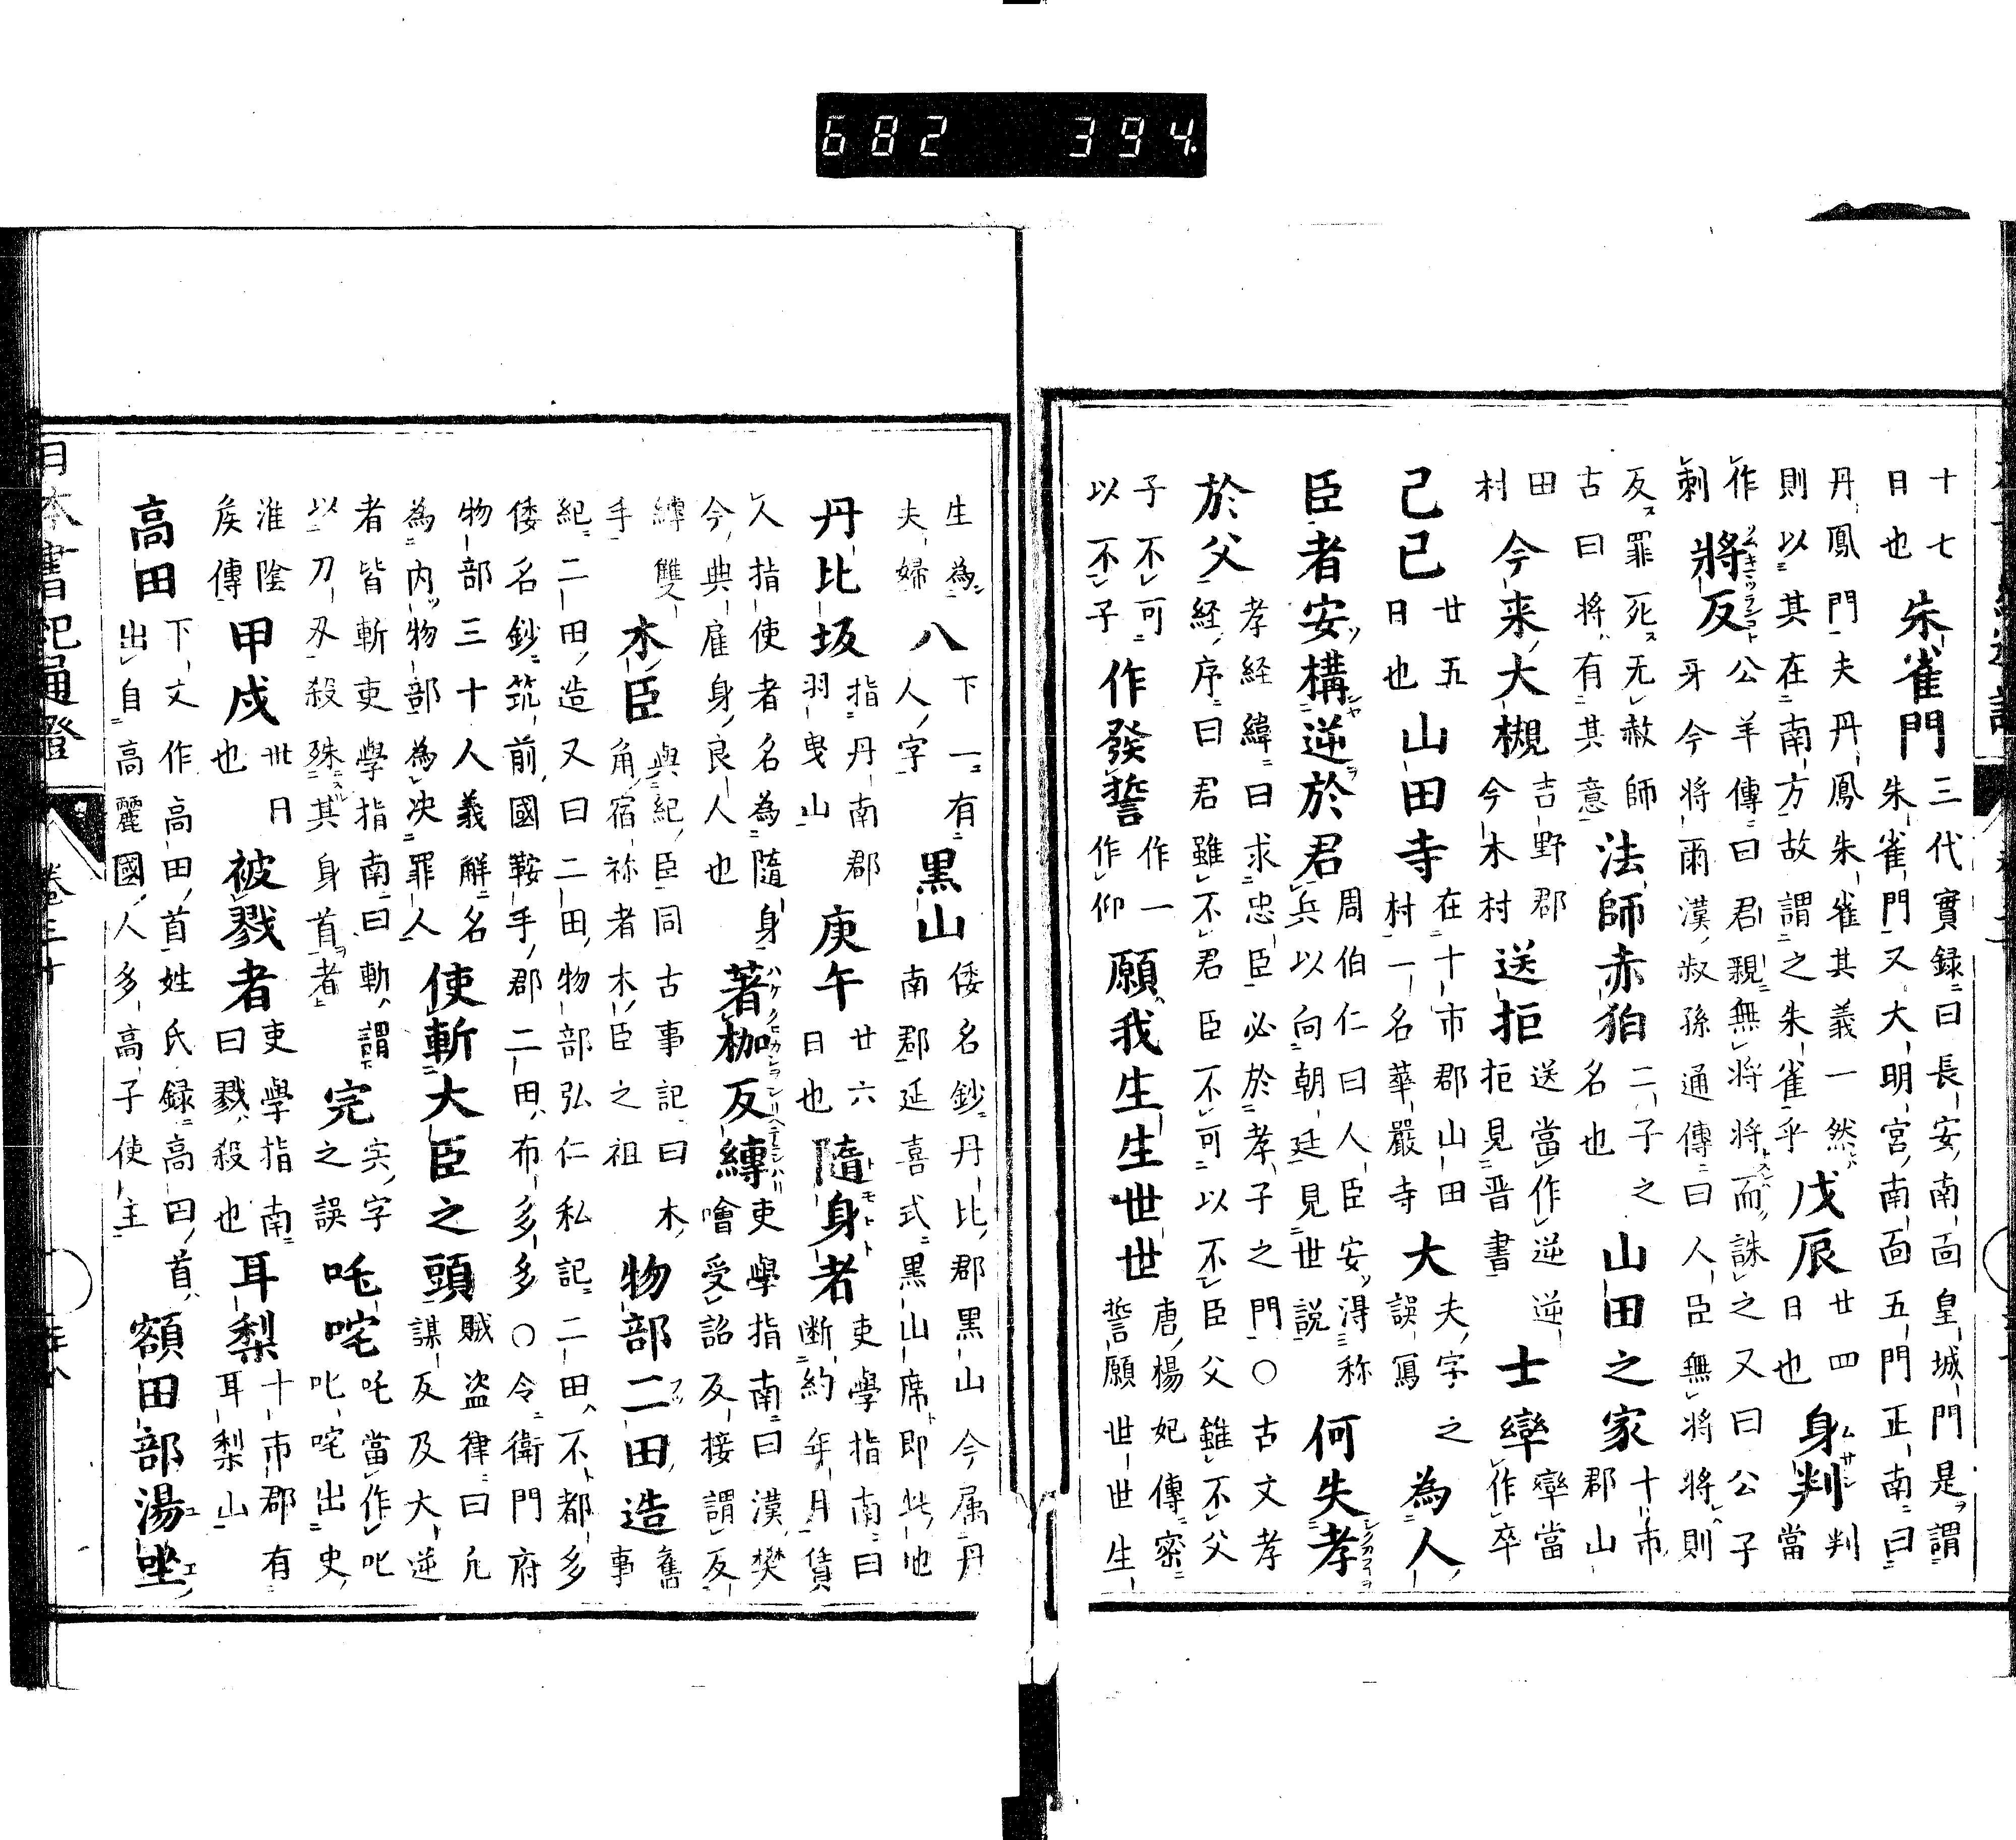 682 394
十七日也朱雀門三代實録曰長安南面皇城門是謂朱雀門又大明宮南面五門正南曰
丹鳳門夫丹鳳朱雀其義一然則以其在南方故謂之朱雀乎戊辰廿四日也身判判當
作剌將反公羊傳曰君親無將將而誅之又曰公子牙今將爾漢叔孫通傳曰人臣無將將則
反罪死无赦師古曰将有其意法師赤狛二子之名也山田之家十市郡山
田村今来大槻吉野郡今木村送拒送當作逆逆拒見晋書士㝈㝈當作卒
己巳廿五日也山田寺在十市郡山田村一名華嚴寺大夫字之誤寫為人
臣者安構逆於君周伯仁曰人臣安淂称兵以向朝廷見世説何失孝
於父孝経緯曰求忠臣必於孝子之門○古文孝経序曰君雖不君臣不可以不臣父雖不父
子不可以不子作發誓作一作仰願我生生世世唐楊妃傳密誓願世世生
生為夫婦八下一有人字黒山倭名鈔丹比郡黒山今属丹南郡延喜式黒山席即此地
丹比坂指丹南郡羽曳山庚午廿六日也隨身者吏學指南曰断約年月賃
人指使者名為隨身今典雇身良人也著枷反縛吏學指南曰漢樊噲受詔反接謂反
縛雙手木臣與紀臣同古事記曰木角宿祢者木臣之祖物部二田造舊事
紀二田造又曰二田物部弘仁私記二田不都多倭名鈔筑前國鞍手郡二田布多多○令衛門府
物部三十人義解名為内物部為决罪人使斬大臣之頭賊盗律曰凡謀反及大逆
者皆斬吏學指南曰斬謂以刀刄殺殊其身首者完宍字之誤吒咤吒當作叱叱咤出史
淮陰矦傳甲戌卅日也被戮者吏學指南曰戮殺也耳梨十市郡有耳梨山
高田下文作高田首姓氏録高田首出自高麗國人多高子使主額田部湯坐
日本書紀通證 卷三十